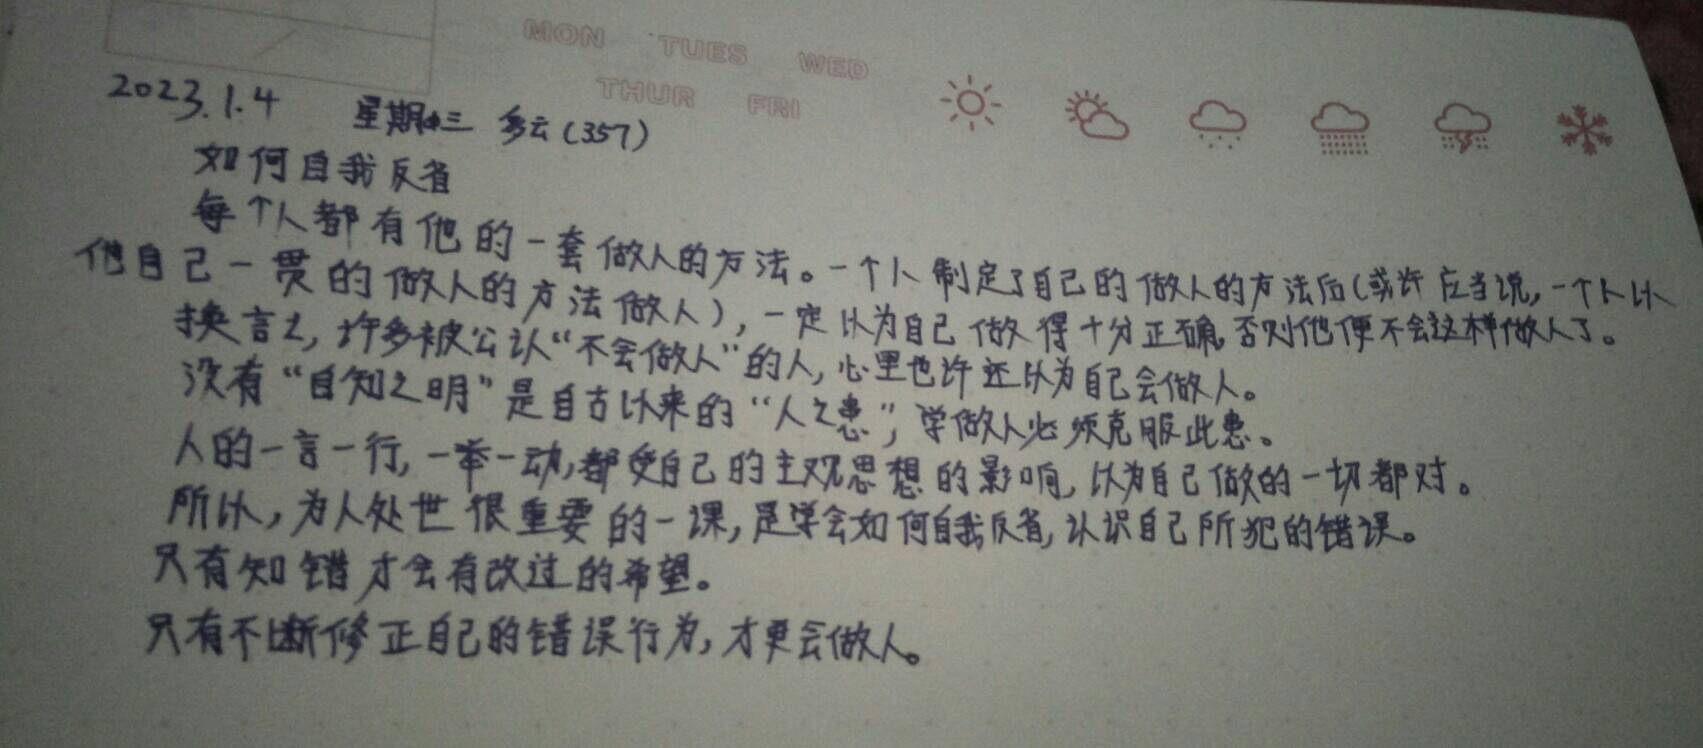 MON TUES WED
THUR FRI
2023.1.4 星期三 多云(357)
如何自我反省
每个人都有他的一套做人的方法。一个人制定了自己的做人的方法后(或许应当说,一个人以
他自己一贯的做人的方法做人),一定以为自己做得十分正确,否则他便不会这样做人了。
换言之,许多被公认“不会做人”的人,心里也许还以为自己会做人。
没有“自知之明”是自古以来的“人之患”,学做人必须克服此患。
人的一言一行,一举一动,都受自己的主观思想的影响,以为自己做的一切都对。
所以,为人处世很重要的一课,是学会如何自我反省,认识自己所犯的错误。
只有知错才会有改过的希望。
只有不断修正自己的错误行为,才更会做人。